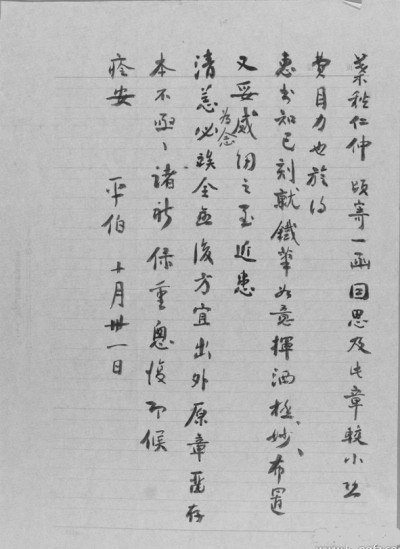 葉秩仁仲 頃寄一函因思及此章較小恐
費目力也於得
惠書知已刻就鐵筆如意揮洒極妙、布置
又妥感細之至近患
為念
清恙必療全愈後方宜出外原章留存
本不亟、諸祈保重恩復即候
痊安 平伯 十月卅一日